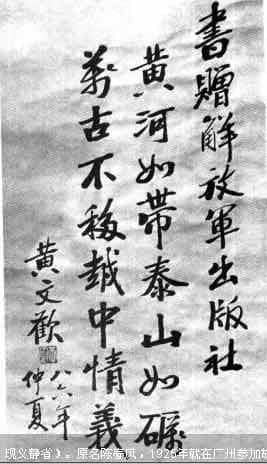 書贈解放軍出版社
黄河如帶泰山如礪
萬古不移越中情義
黄文歡
八六年
仲夏
现义静省）。原名陈春风，1926年就在广州参加胡